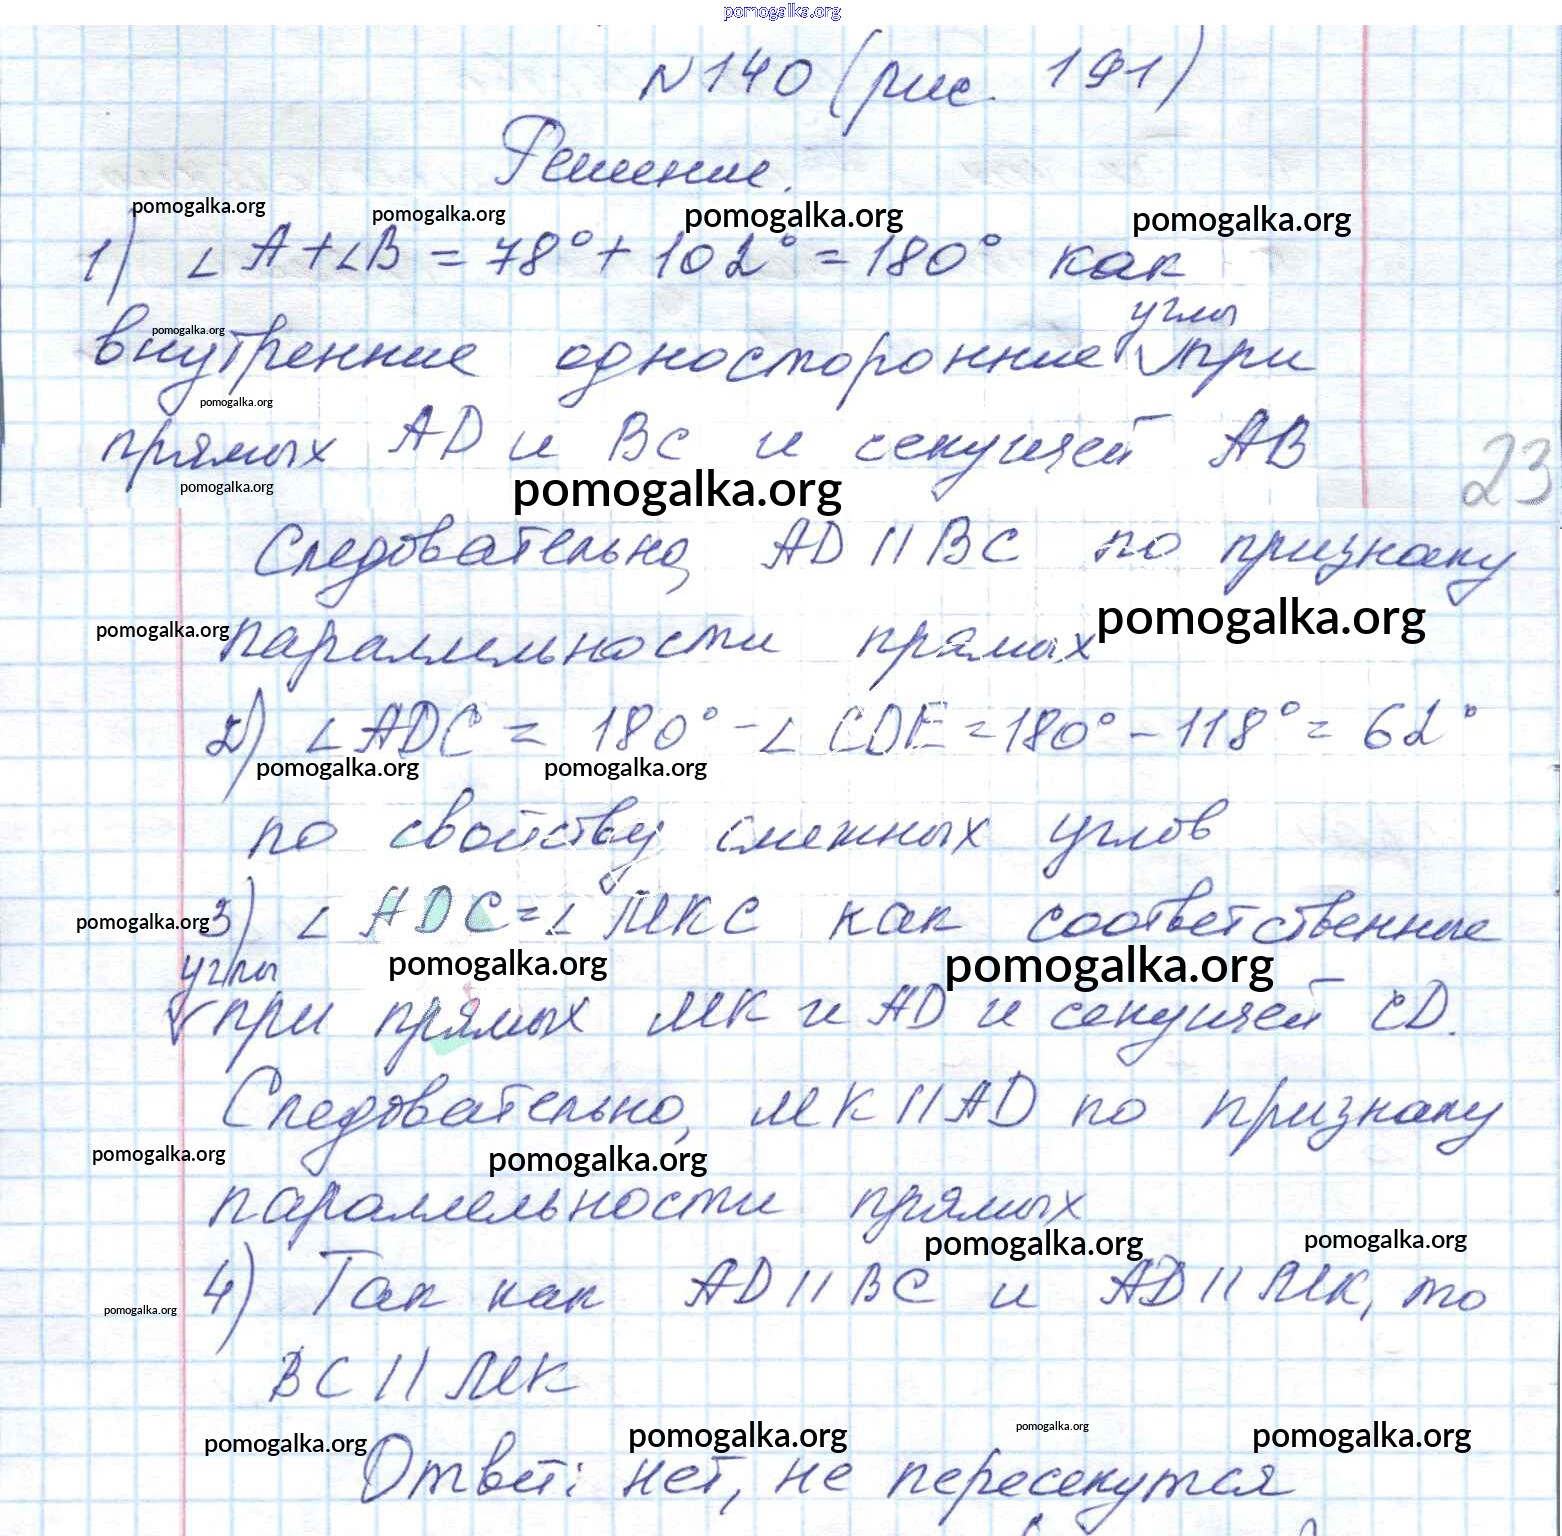 pomogalka.org
N140 (рис. 191)
Решение.
pomogalka.org pomogalka.org pomogalka.org pomogalka.org
1) ∠A+∠B = 78° + 102° = 180° как
углы
pomogalka.org
внутренние односторонние при
pomogalka.org
прямых AD и BC и секущей AB
23
pomogalka.org pomogalka.org
Следовательно, AD || BC по признаку
pomogalka.org
параллельности прямых
pomogalka.org
2) ∠ADC = 180° - ∠CDE = 180° - 118° = 62°
pomogalka.org pomogalka.org
по свойству смежных углов
pomogalka.org
3) ∠ADC = ∠MKC как соответственные
углы
pomogalka.org pomogalka.org
при прямых MK и AD и секущей CD.
Следовательно, MK || AD по признаку
pomogalka.org pomogalka.org
параллельности прямых
pomogalka.org pomogalka.org
4) Так как AD || BC и AD || MK, то
pomogalka.org
BC || MK
pomogalka.org pomogalka.org pomogalka.org pomogalka.org
Ответ: нет, не пересекутся